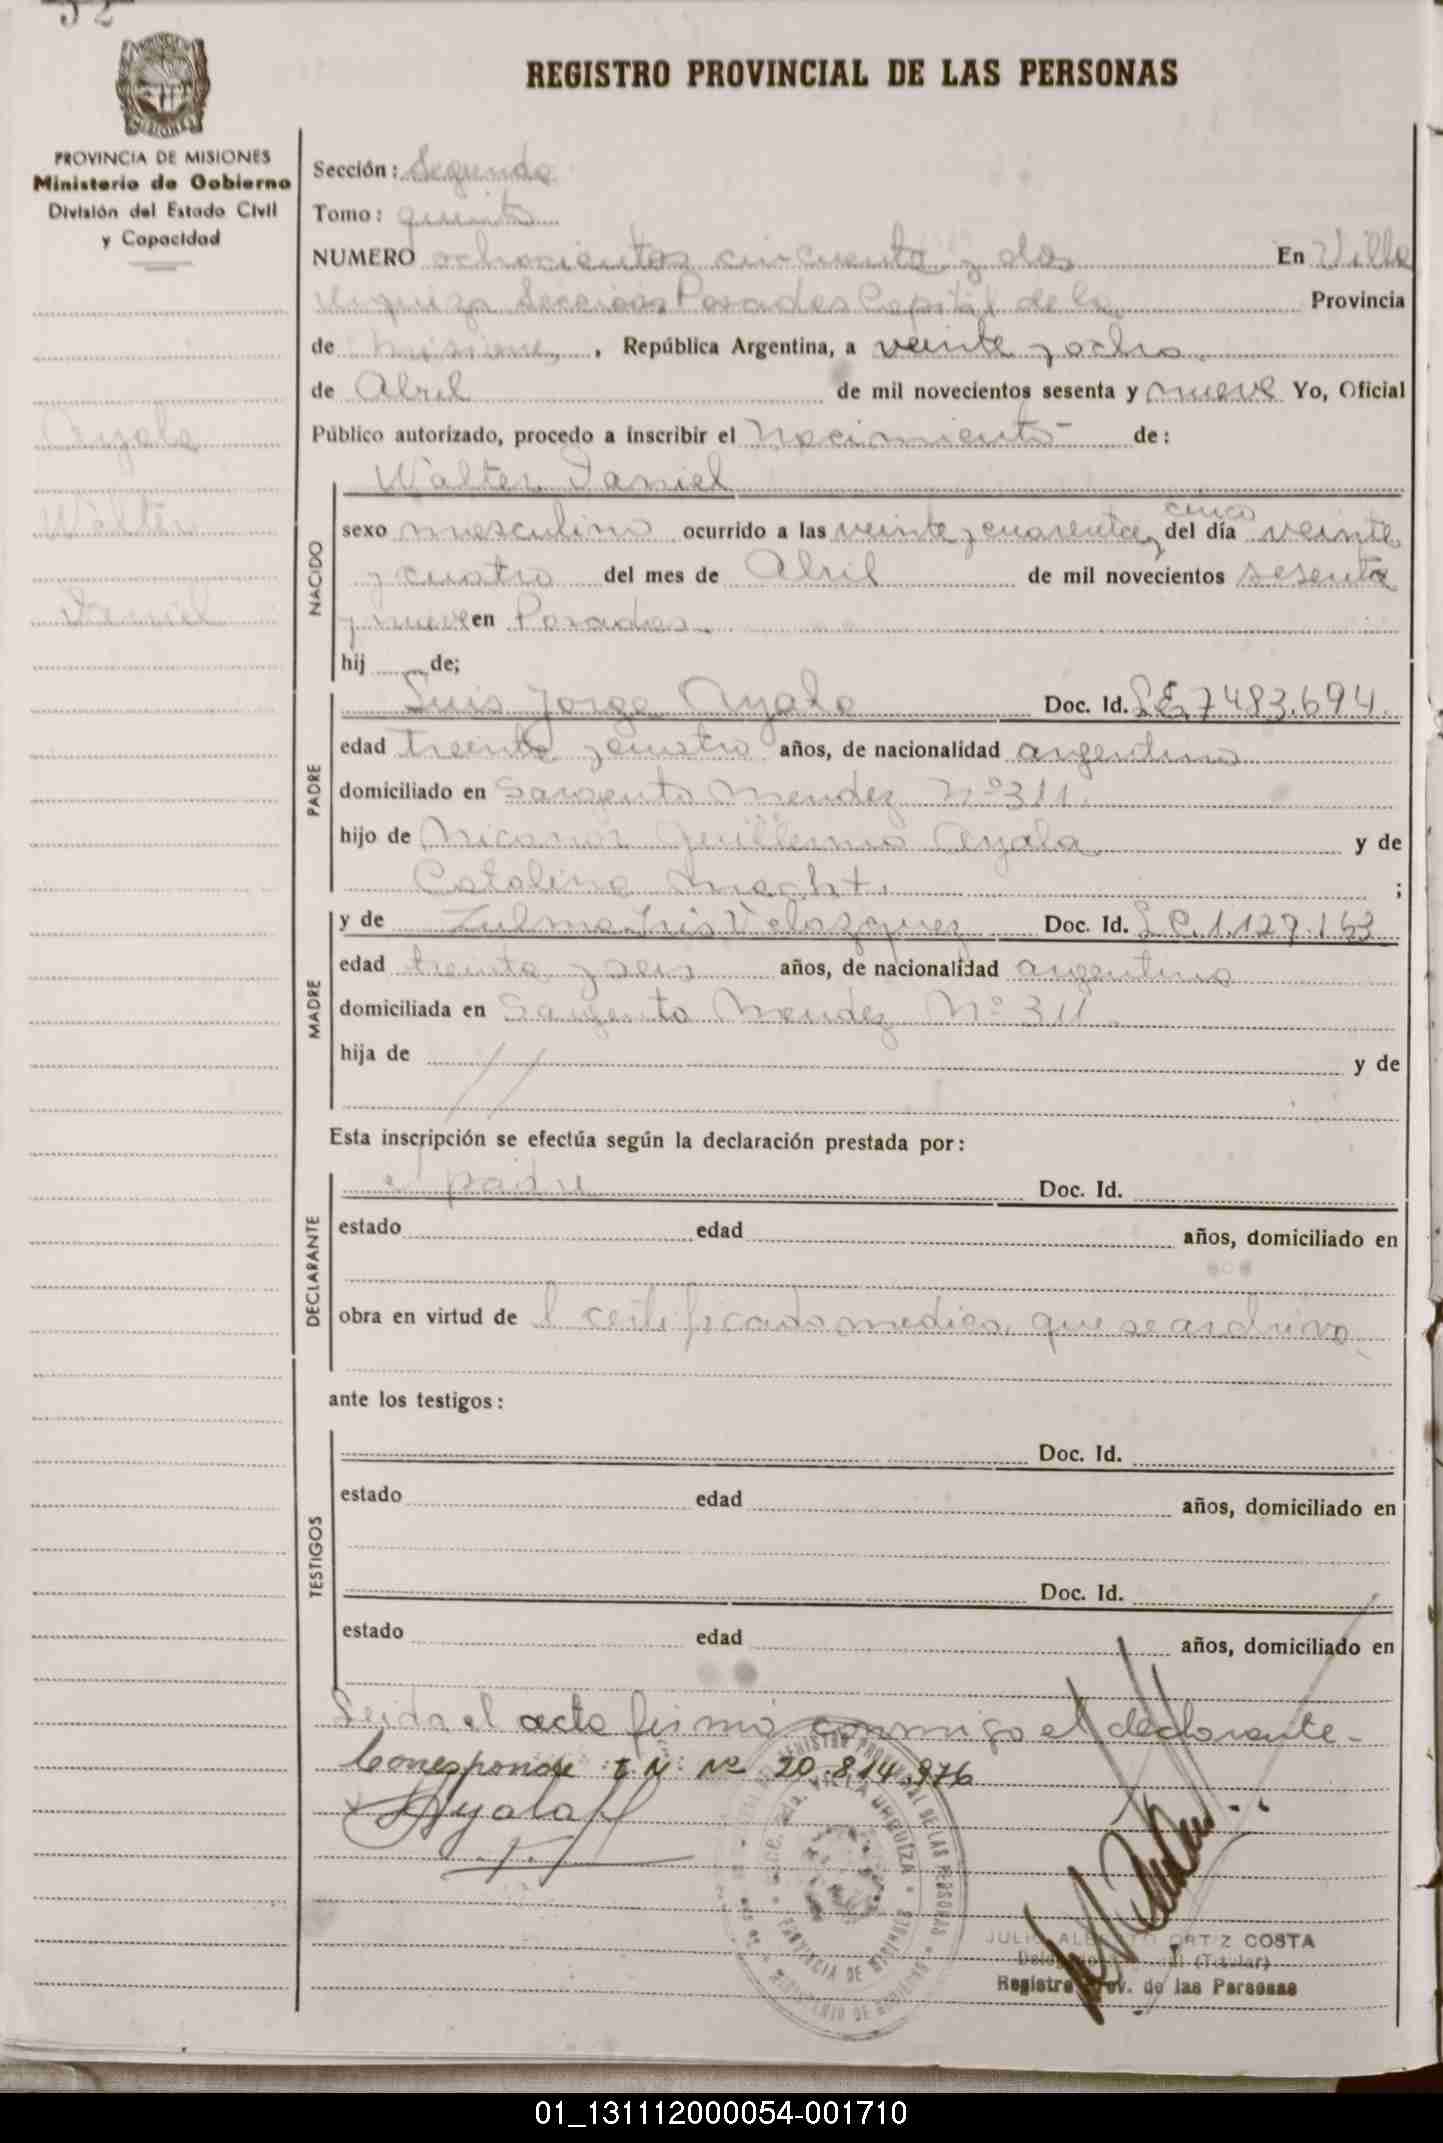 REGISTRO PROVINCIAL DE LAS PERSONAS
PROVINCIA DE MISIONES
Ministerio de Gobierno
División del Estado Civil
y Capacidad
Ayala
Walter
Daniel
Sección: Segunda
Tomo: quinto
NUMERO ochocientos cincuenta y dos En Villa
Urquiza Seccion Posadas Capital de la Provincia
de Misiones, , República Argentina, a veinte y ocho
de Abril de mil novecientos sesenta y nueve Yo, Oficial
Público autorizado, procedo a inscribir el Nacimiento de:
Walter Daniel
NACIDO
cinco
sexo masculino ocurrido a las veinte y cuarenta y del día veinte
y cuatro del mes de Abril de mil novecientos sesenta
y nueve en Posadas.
hij de;
PADRE
Luis Jorge Ayala Doc. Id. L.E. 7483.694.
edad treinta y cuatro años, de nacionalidad argentino
domiciliado en Sargento Mendez Nº 311.
hijo de Nicanor Guillermo Ayala y de
Catalina ;
MADRE
y de Zulma Iris Velazquez Doc. Id. L.C. 1.127.163
edad treinta y seis años, de nacionalidad argentina
domiciliada en Sargento Mendez Nº 311.
hija de // y de
Esta inscripción se efectúa según la declaración prestada por:
DECLARANTE
el padre Doc. Id.
estado edad años, domiciliado en
obra en virtud de l certificado medico que se archiva
ante los testigos:
TESTIGOS
Doc. Id.
estado edad años, domiciliado en
Doc. Id.
estado edad años, domiciliado en
Leida el acta firmó conmigo el declarante -
Corresponde I. M. Nº 20.814.976
Ayala
JULIO ALBERTO ORTIZ COSTA
(Titular)
Registro Prov. de las Personas
01_131112000054-001710